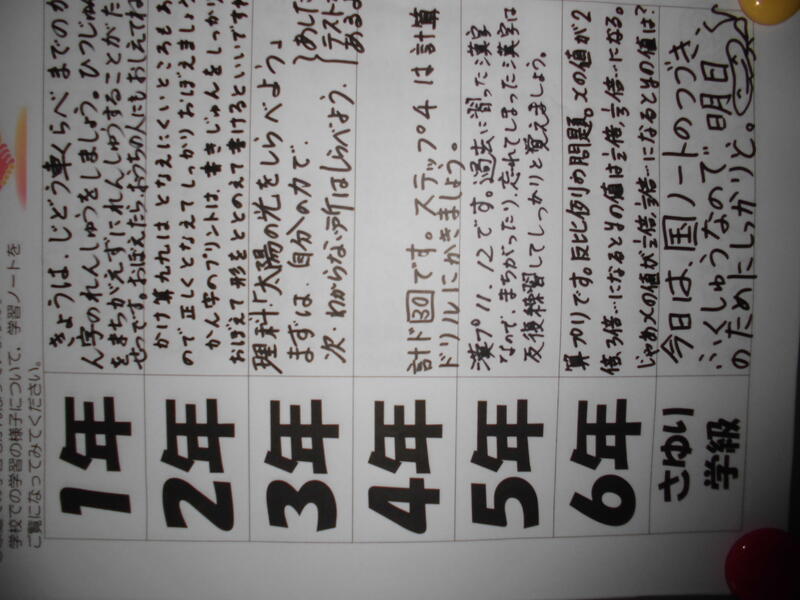 学校での学習の様子について、学習ノートを
ご覧になってみてください。
1年
きょうは、じどう車くらべ までのか
ん字のれんしゅうをしましょう。ひつじゅ
をまちがえずにれんしゅうすることがた
せつです。おぼえたら、おうちの人にもおしえてね
2年
かけ算九九は となえにくいところもあ
ので正しくとなえてしっかりおぼえましょう
かん字のプリントは、書きじゅんをしっかり
おぼえて形をととのえて書けるといいですね
3年
理科「太陽の光をしらべよう」
まずは、自分の力で、
次、わからない所はしらべよう。
あした
テスト
あるよ
4年
計ド30です。ステップ4 は 計算
ドリルにかきましょう。
5年
漢プ11、12です。過去に習った漢字
なので、まちがったり、忘れてしまった漢字は
反復練習してしっかりと覚えましょう。
6年
算プリです。反比例の問題。xの値が2
倍、3倍…になるとyの値は1/2倍、1/3倍…になる。
じゃあxの値が1/2倍、1/3倍…になるとyの値は?
さゆり
学級
今日は、国ノートのつづき、
ふくしゅうなので、明日、
のためにしっかりと。